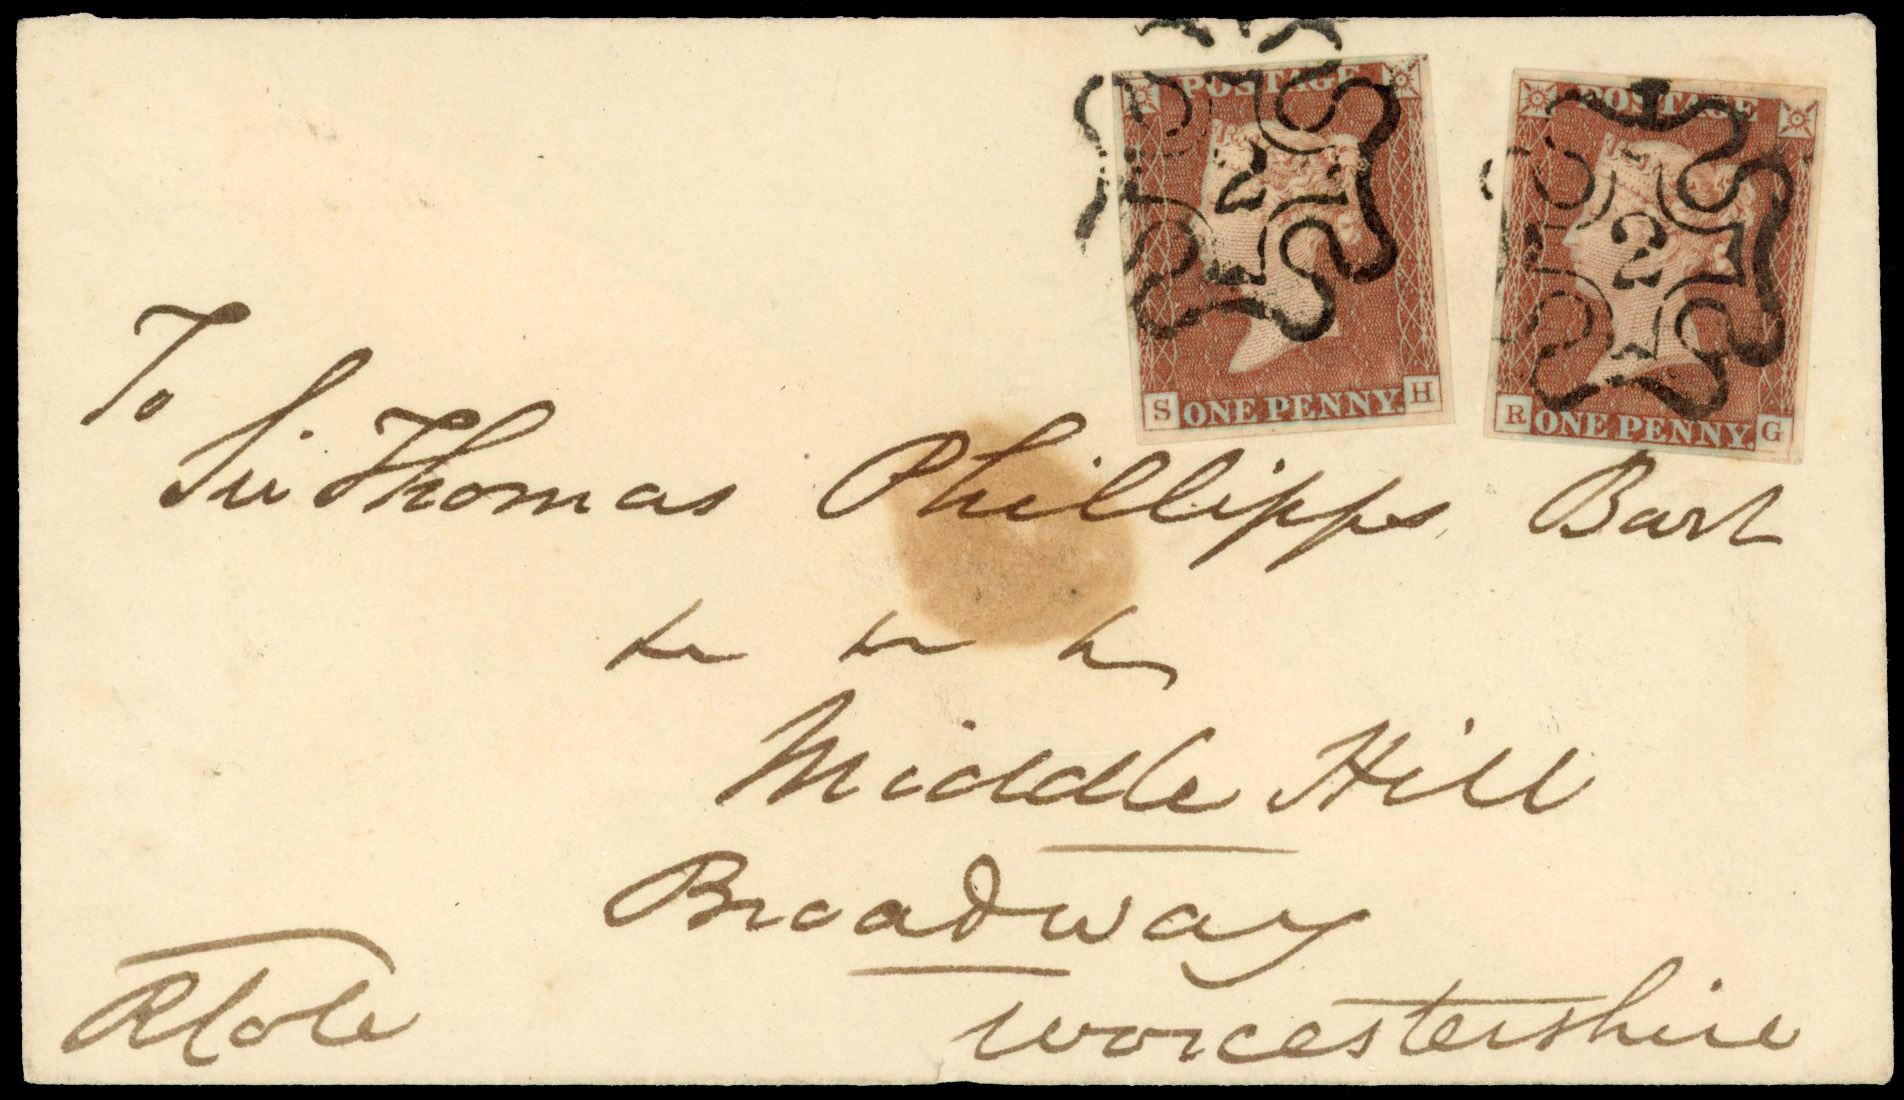 POSTAGE
2
S ONE PENNY. H
POSTAGE
2
R ONE PENNY. G
To
Sir Thomas Phillipps Bart
Middle Hill
Broadway
Worcestershire